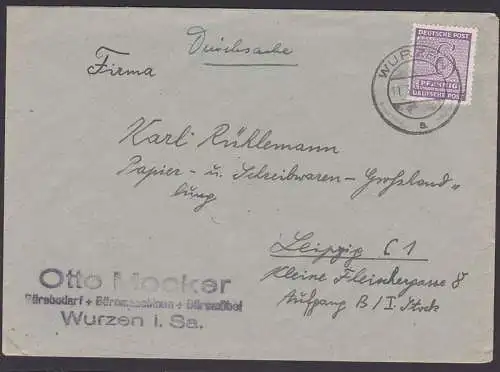 Drucksache
DEUTSCHE POST
6
PFENNIG
DEUTSCHE POST
WURZEN
a
Firma
Karl Rühlemann
Papier - u. Schreibwaren - Großhand„
lung
Leipzig C 1
Kleine Fleischergasse 8
Aufgang B/I. Stock
Otto Mocker
Bürobedarf + Büromaschinen + Büromöbel
Wurzen i. Sa.